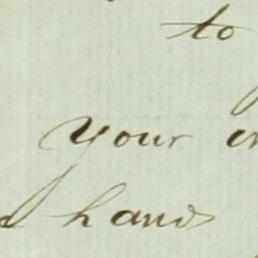 to
your
hand